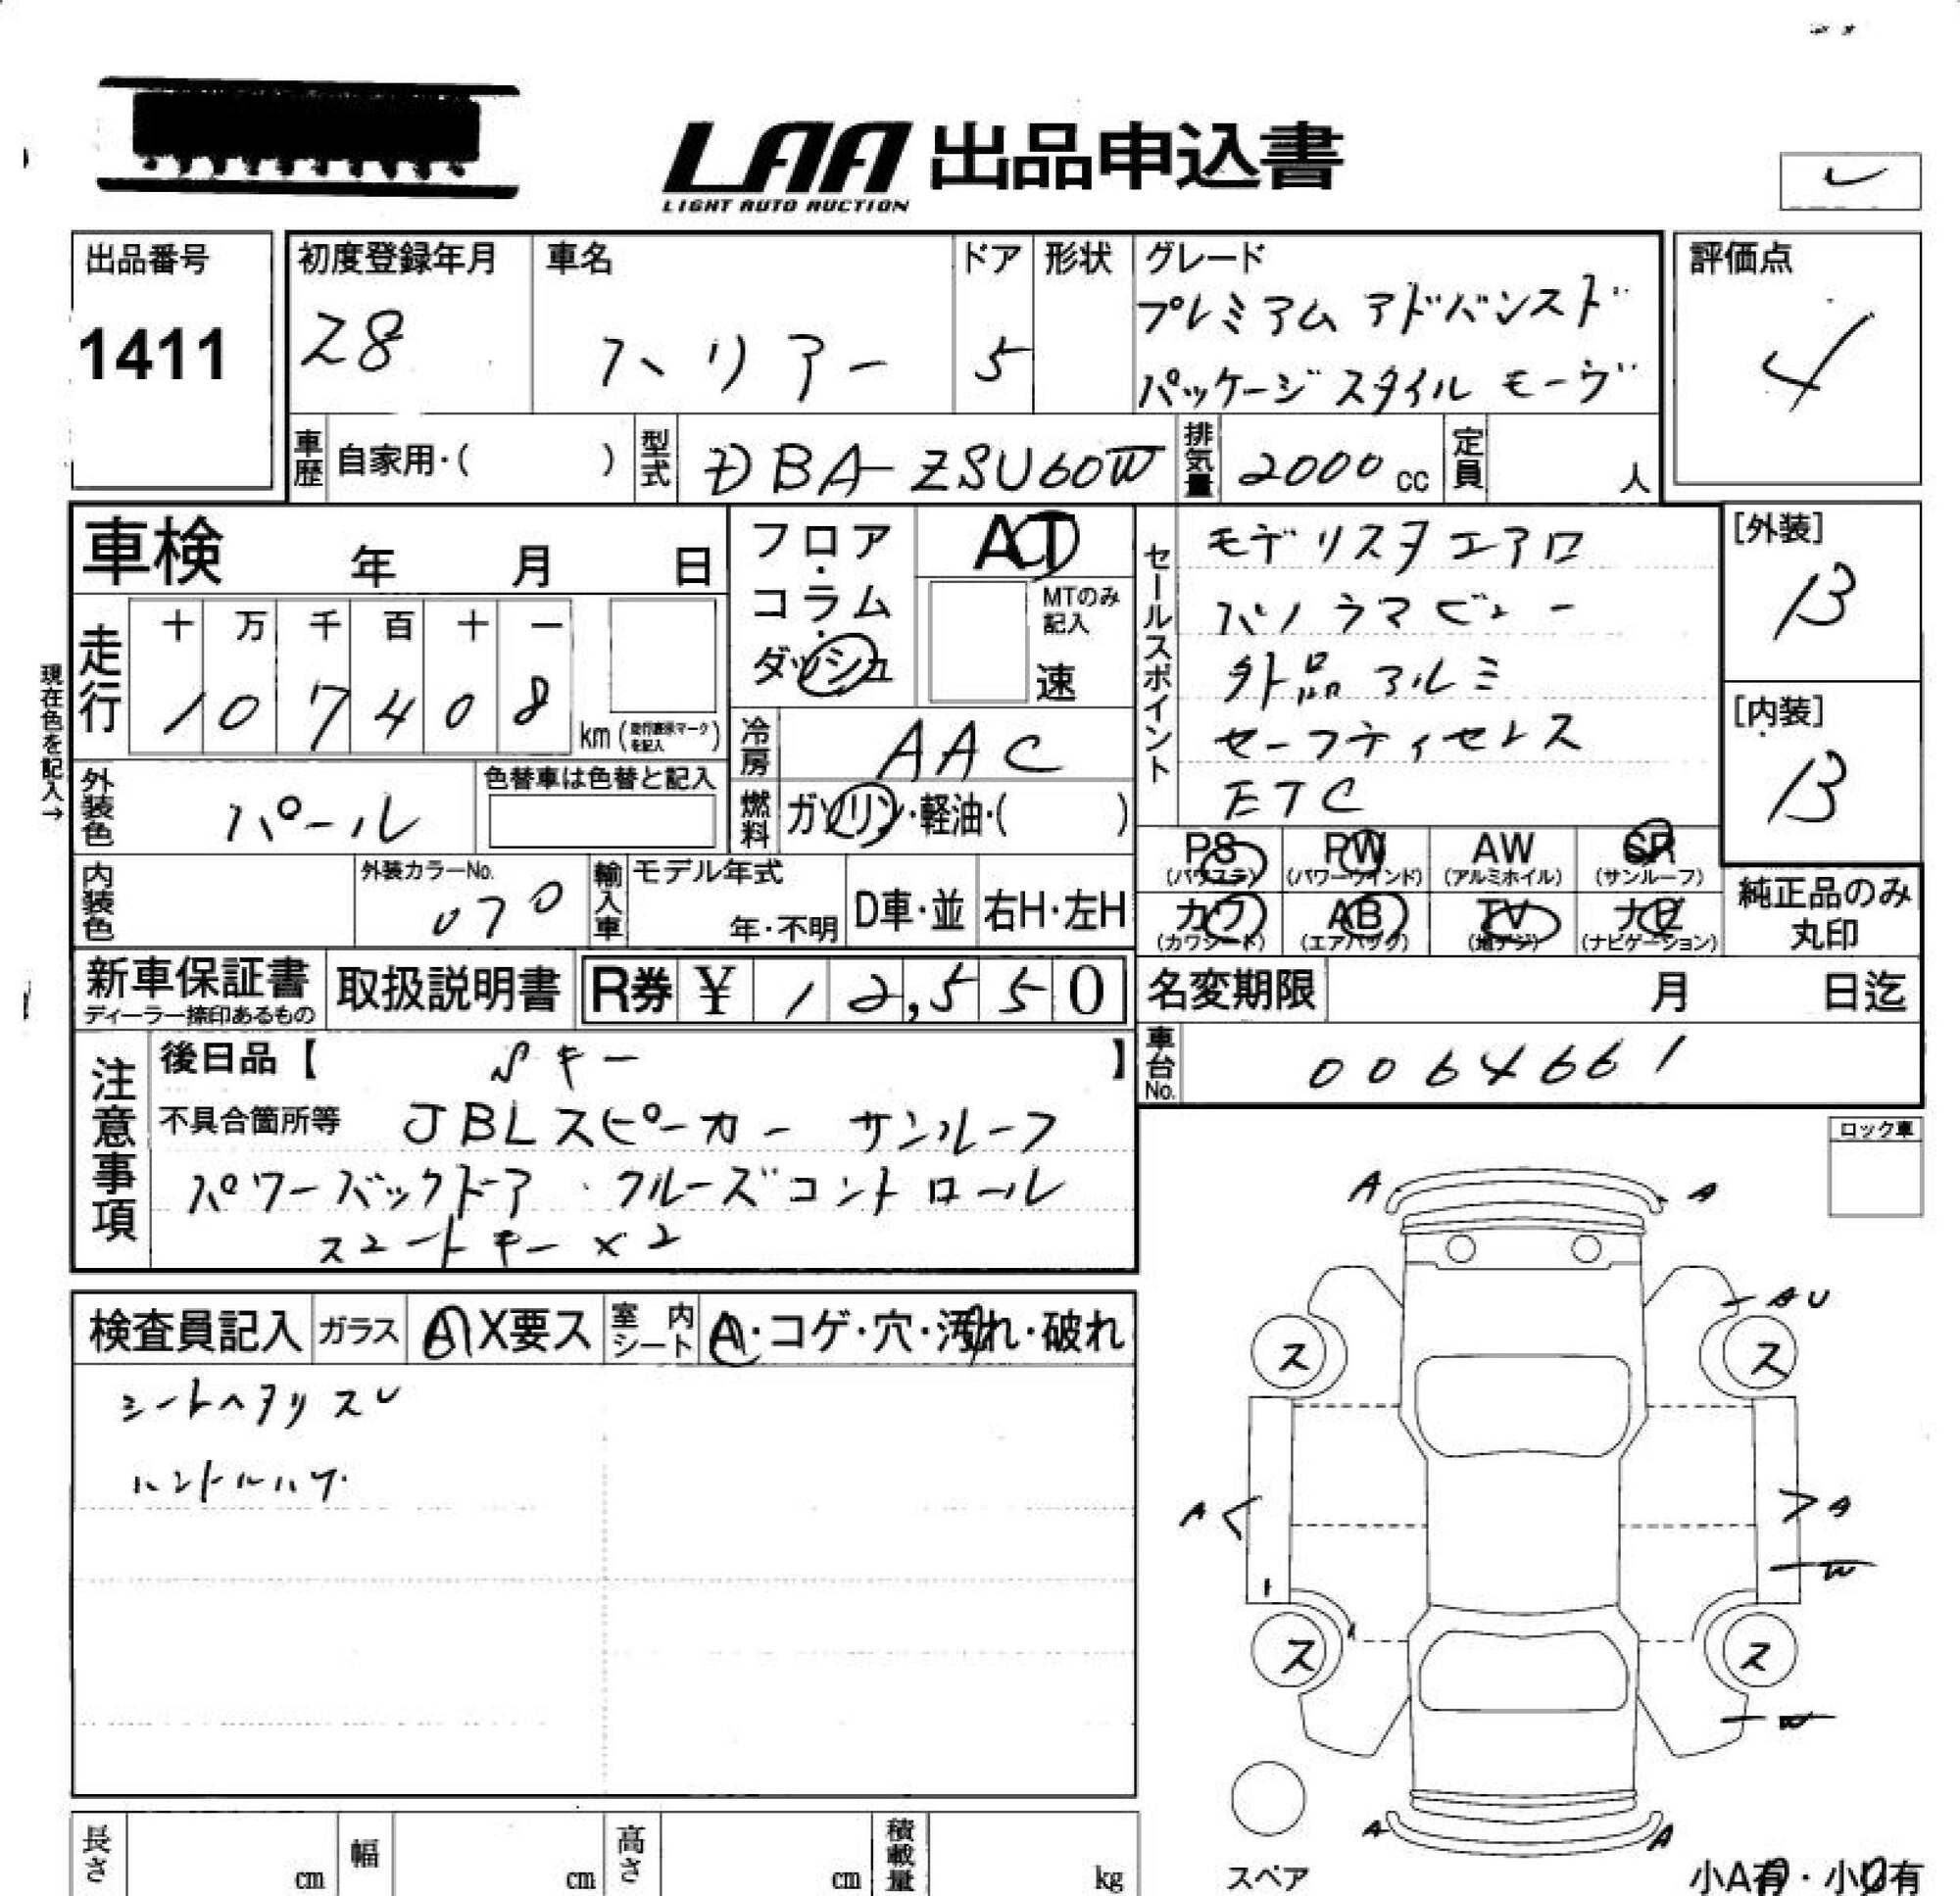 LAA 出品申込書
LIGHT AUTO AUCTION
出品番号
1411
初度登録年月
28
車名
ハリアー
ドア
5
形状
グレード
プレミアム アドバンスド
パッケージ スタイル モーヴ
評価点
4
車歴 自家用・( )
型式 DBA-ZSU60W
排気量 2000 cc
定員 人
車検 年 月 日
フロア・コラム・ダッシュ
AT
MTのみ記入
速
セールスポイント
モデリスタエアロ
パノラマビュー
外品アルミ
セーフティセンス
ETC
[外装]
B
[内装]
B
現在色を記入→
走行
十 万 千 百 十 一
1 0 7 4 0 8
km (走行表示マークを記入)
冷房 AAC
燃料 ガソリン・軽油・( )
外装色 パール
色替車は色替と記入
PS (パワステ)
PW (パワーウインド)
AW (アルミホイル)
SR (サンルーフ)
カワ (カワシート)
AB (エアバック)
TV (地デジ)
ナビ (ナビゲーション)
純正品のみ丸印
内装色
外装カラーNo.
070
輸入車
モデル年式
年・不明
D車・並
右H・左H
新車保証書
ディーラー捺印あるもの
取扱説明書
R券 ¥ 12,550
名変期限 月 日迄
車台No. 0064661
注意事項
後日品【 Sキー 】
不具合箇所等 JBLスピーカー サンルーフ
パワーバックドア・クルーズコントロール
スマートキー×2
ロック車
検査員記入
ガラス A X要ス
室内シート A・コゲ・穴・汚れ・破れ
シートヘタリスレ
ハンドルハゲ
A A
AU
ス ス
A A
W
ス ス
W
A A
スペア
小A有・小U有
長さ cm
幅 cm
高さ cm
積載量 kg